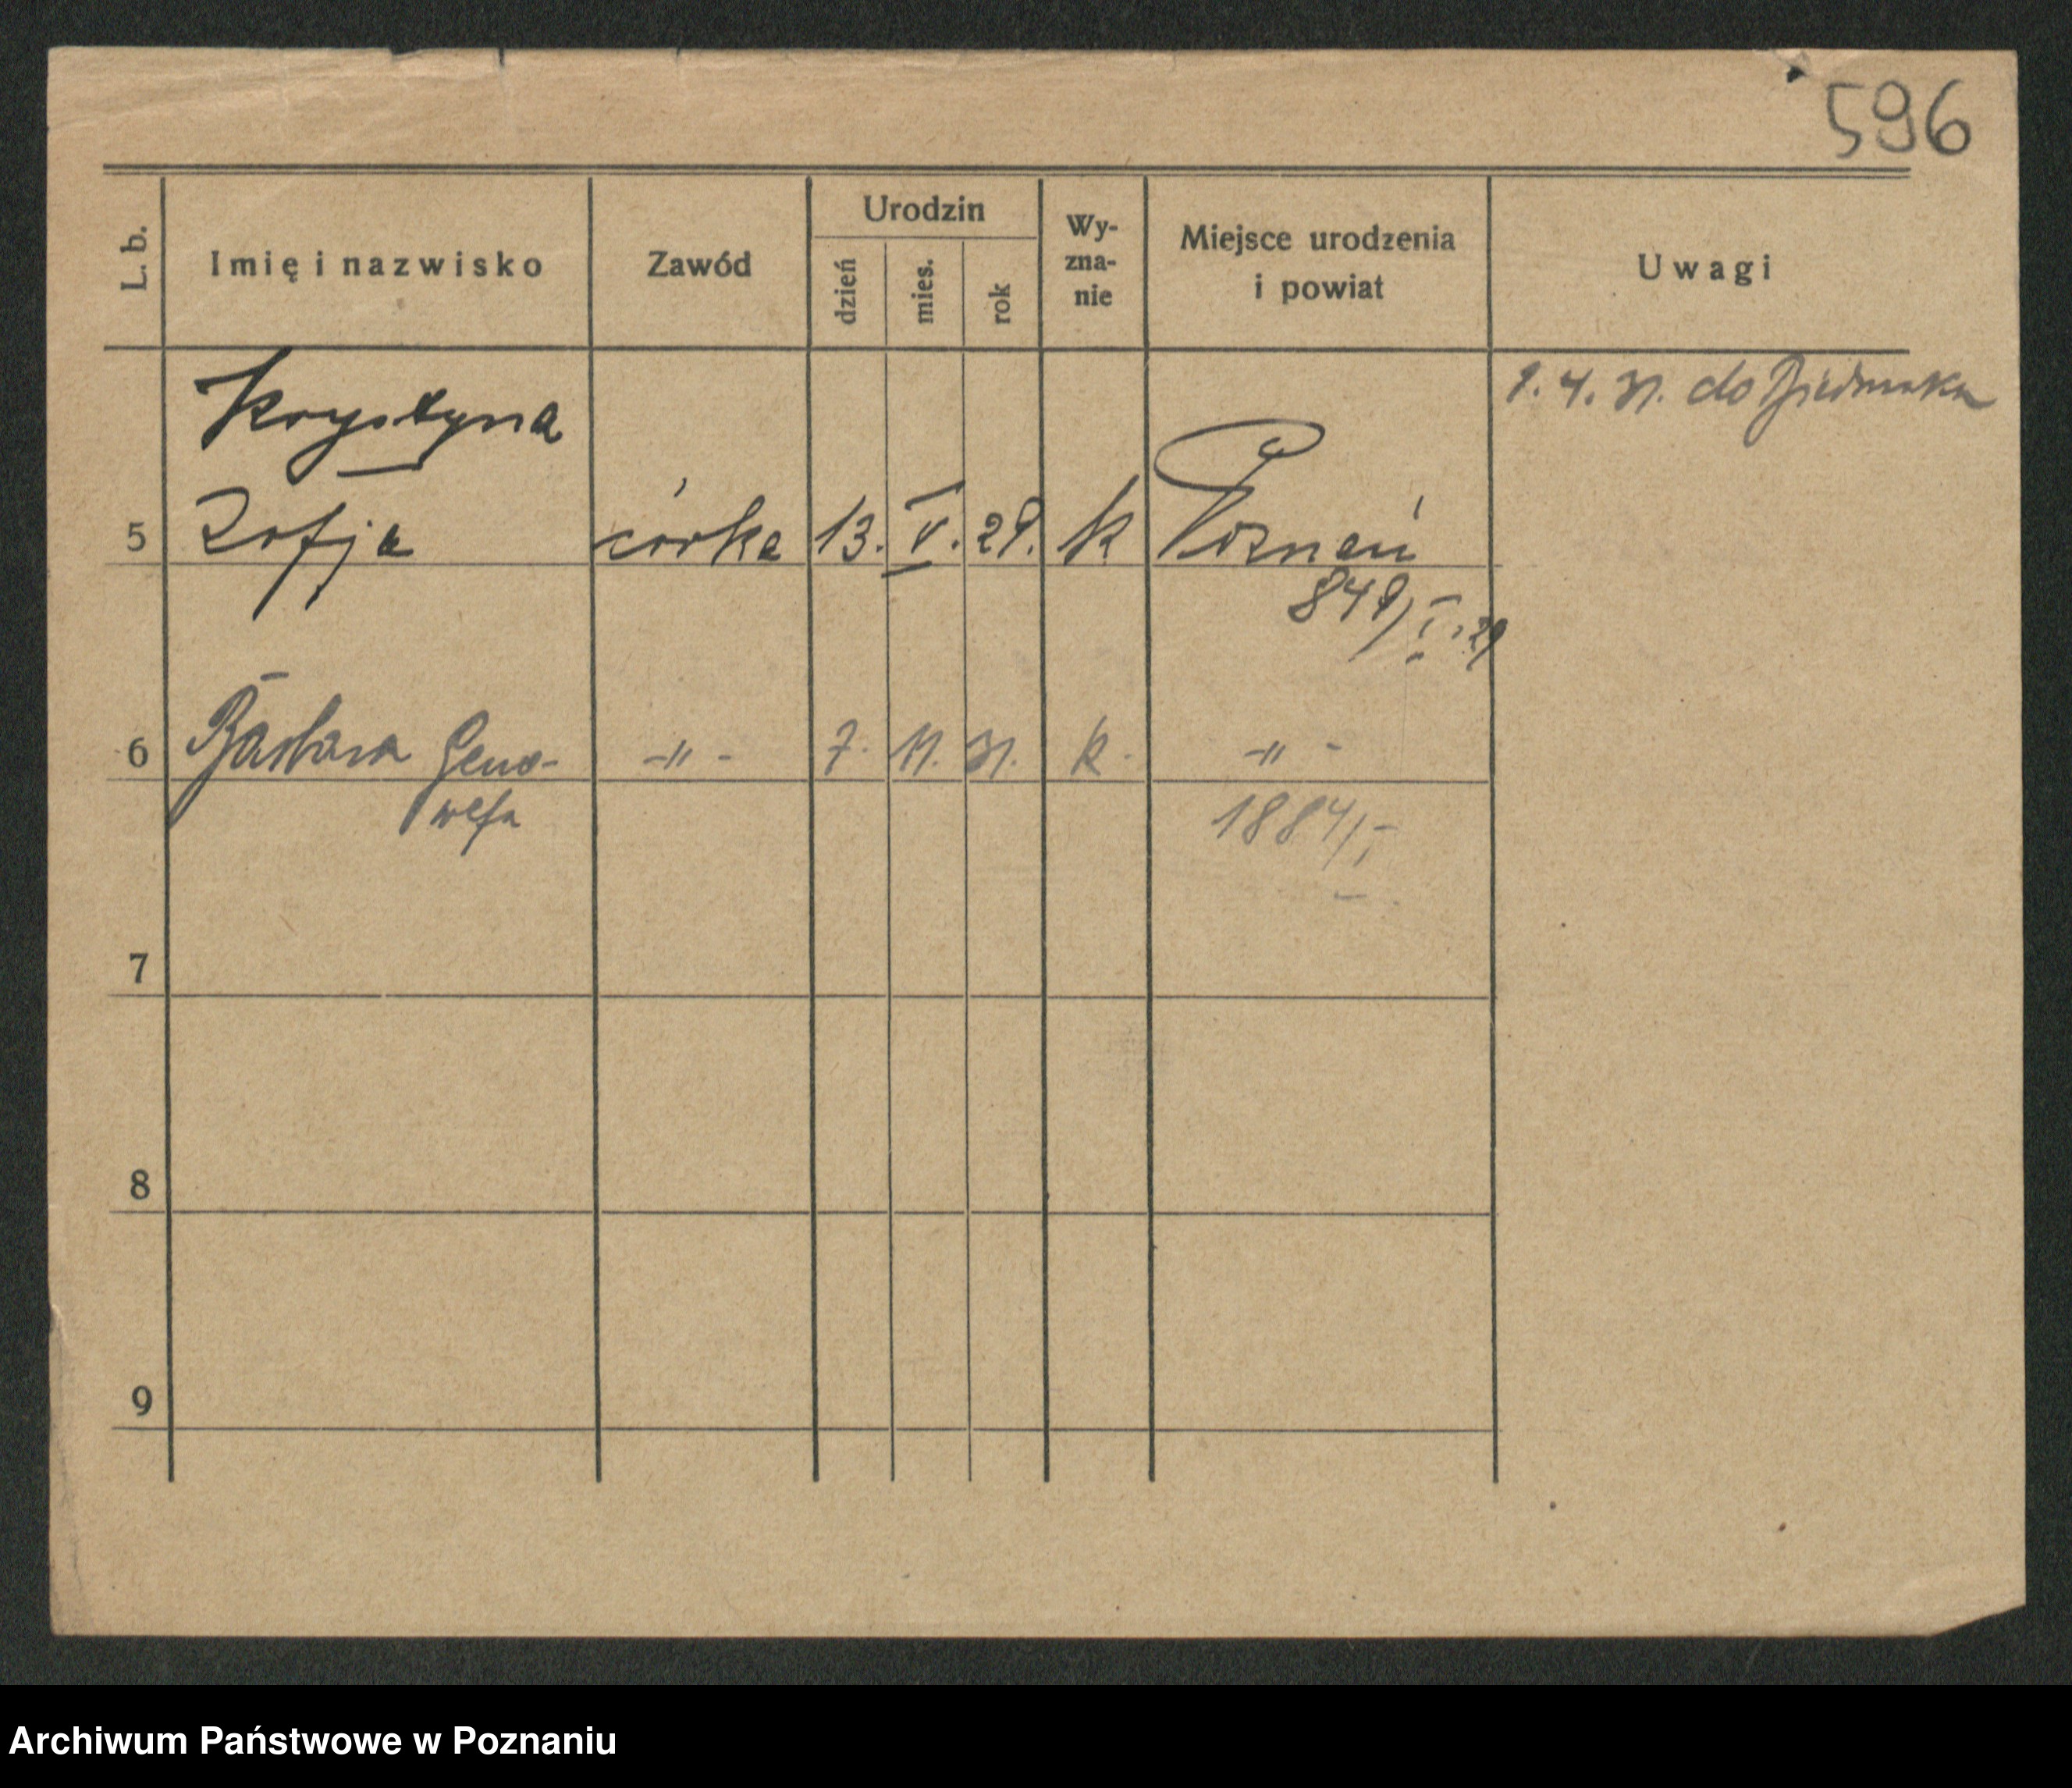 596
L. b.
Imię i nazwisko
Zawód
Urodzin
dzień
mies.
rok
Wy-
zna-
nie
Miejsce urodzenia
i powiat
Uwagi
1. 4. 31. do Biedruska
Krystyna
5 Zofja córka 13. V. 29. k Poznań
849/I. 29
6 Barbara Geno- -"- 7. 11. 31. k. -"-
wefa
1884/I
7
8
9
Archiwum Państwowe w Poznaniu